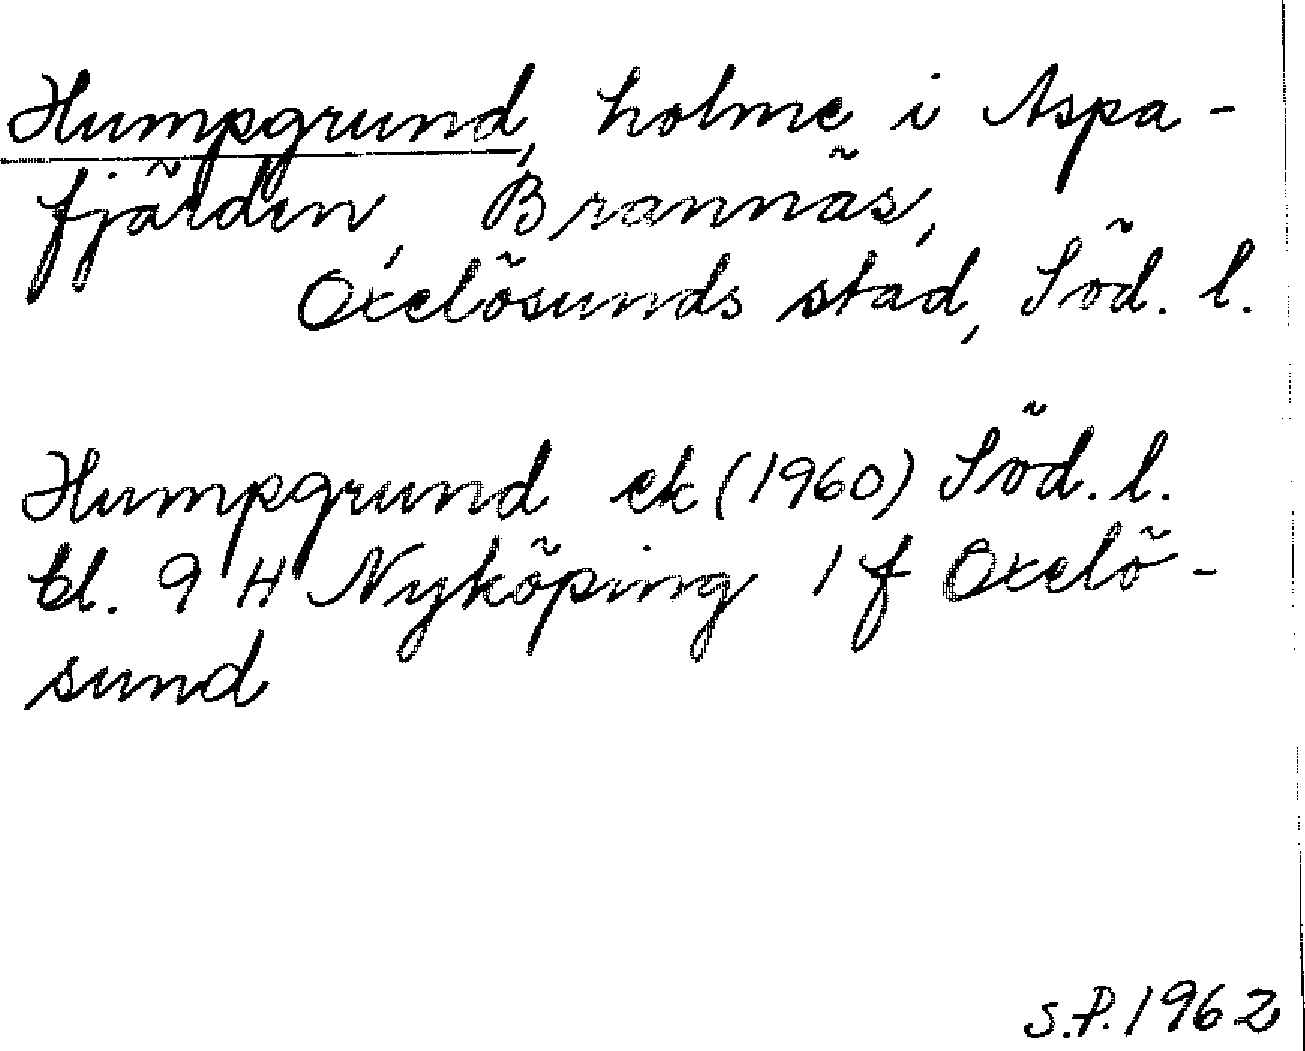 Humpgrund, holme i Aspa-
fjärden, Brannäs,
Oxelösunds stad, Söd. l.
Humpgrund ek (1960) Söd. l.
bl. 9 H Nyköping 1 f Oxelö-
sund
S.P. 1962